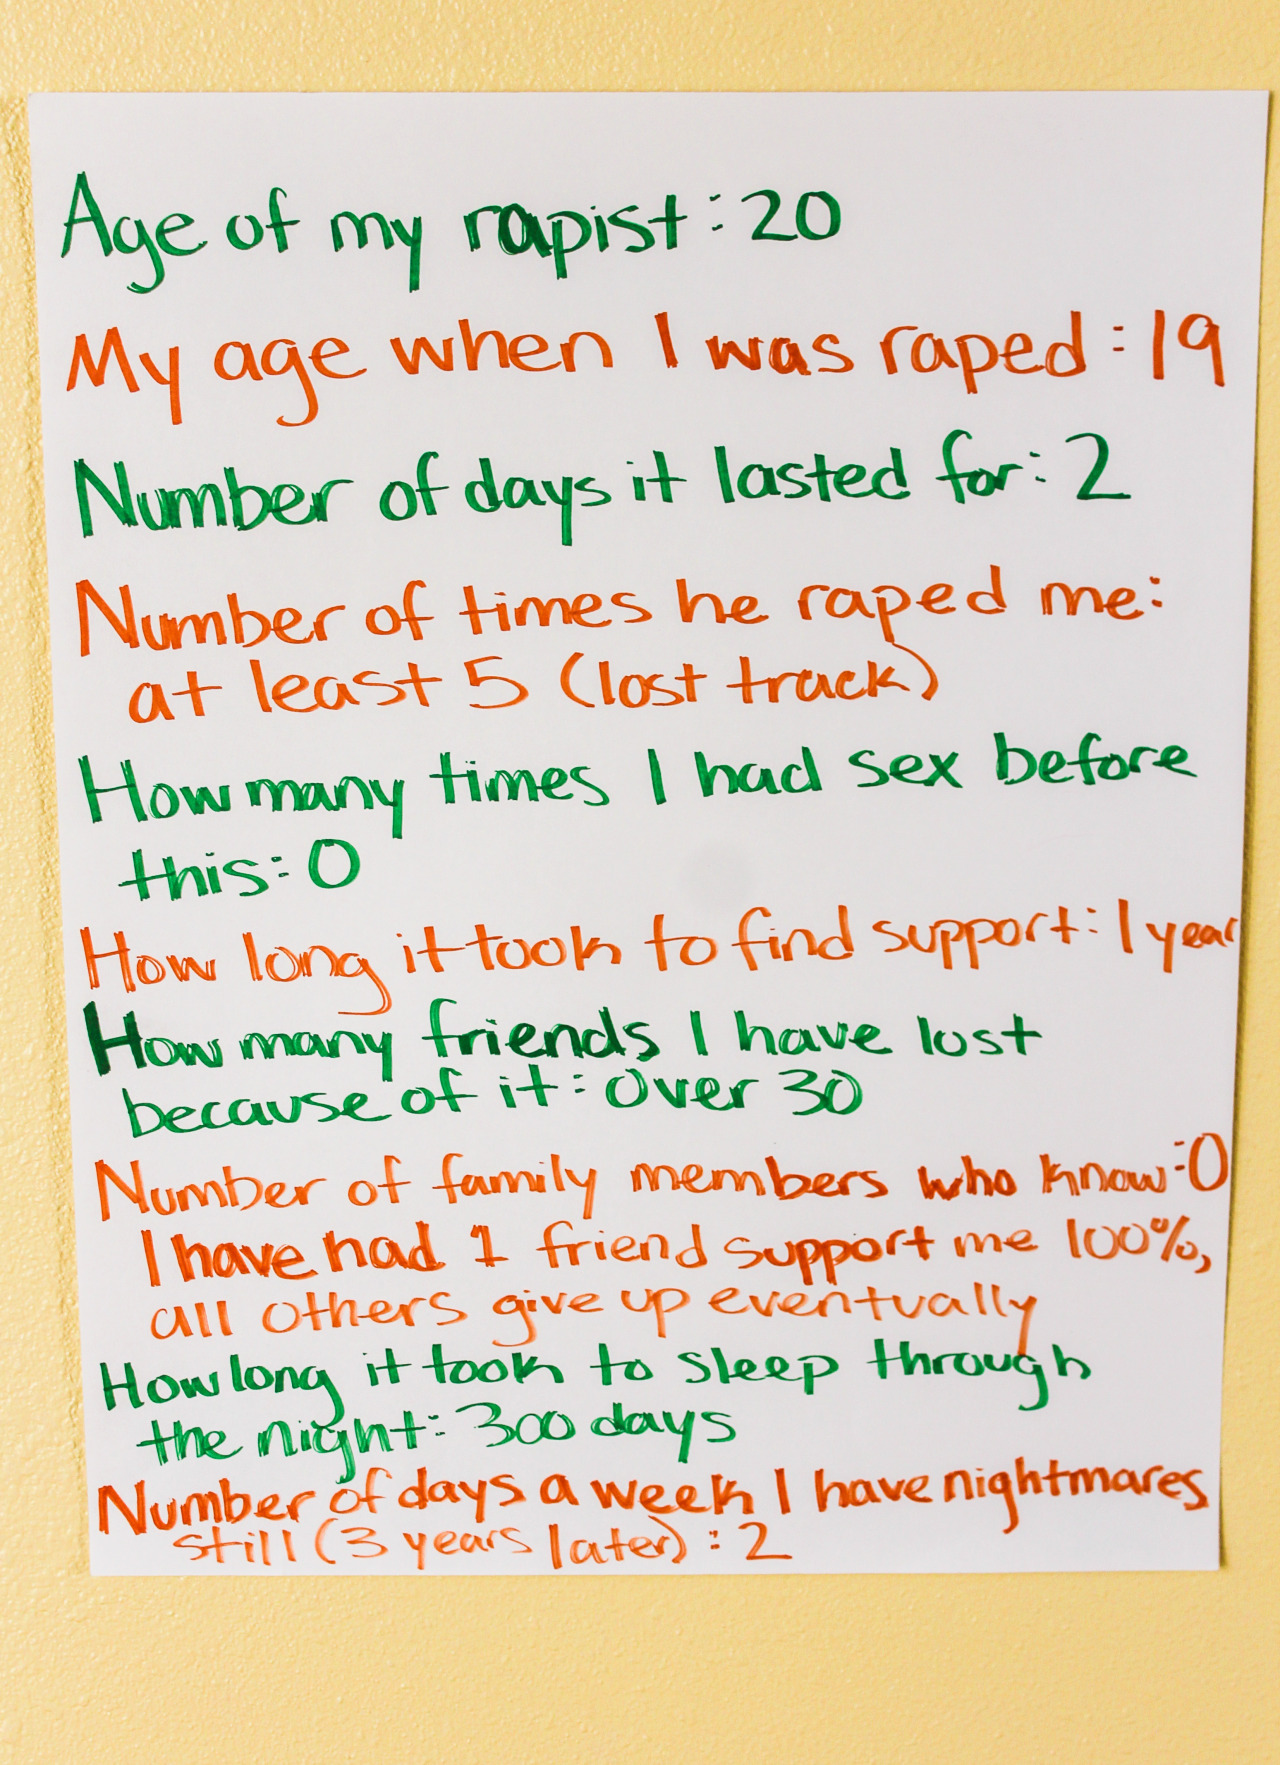 Age of my rapist: 20
My age when I was raped: 19
Number of days it lasted for: 2
Number of times he raped me:
at least 5 (lost track)
How many times I had sex before
this: 0
How long it took to find support: 1 year
How many friends I have lost
because of it: over 30
Number of family members who know: 0
I have had 1 friend support me 100%,
all others give up eventually
How long it took to sleep through
the night: 300 days
Number of days a week I have nightmares
still (3 years later): 2